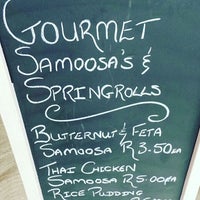 GOURMET
SAMOOSA'S &
SPRINGROLLS
BUTTERNUT & FETA
SAMOOSA R3.50EA
THAI CHICKEN
SAMOOSA R5.00EA
RICE PUDDING